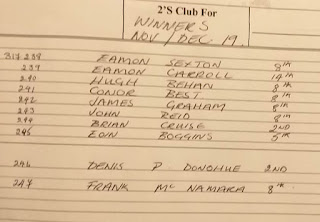 2'S Club For
WINNERS
NOV/DEC 19.
238 EAMON SEXTON 8th
239 EAMON CARROLL 14th
240 HUGH BEHAN 8th
241 CONOR BEST 8th
242 JAMES GRAHAM 8th
243 JOHN REID 8th
244 BRIAN CRUISE 2ND
245 EOIN BOGGINS 5th
246 DENIS P DONOHUE 2ND
247 FRANK Mc NAMARA 8th